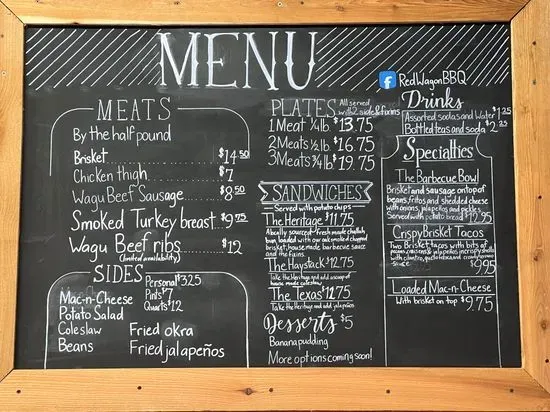 MENU
f RedWagonBBQ
MEATS
By the half pound
Brisket $14.50
Chicken thigh $7
Wagu Beef Sausage $8.50
Smoked Turkey breast $9.75
Wagu Beef ribs $12
(limited availability)
SIDES
Personal $3.25
Pints $7
Quarts $12
Mac-n-Cheese
Potato Salad
Coleslaw
Beans
Fried okra
Fried jalapeños
PLATES
All served
with 2 side & fixins
1 Meat 1/4 lb. $13.75
2 Meats 1/2 lb $16.75
3 Meats 3/4 lb $19.75
SANDWICHES
Served with potato chips
The Heritage $11.75
A locally sourced fresh made challah
bun, loaded with our oak smoked chopped
brisket, house made barbecue sauce
and the fixins.
The Haystack $12.75
Take the Heritage and add scoop of
house made coleslaw
The Texas $12.75
Take the Heritage and add jalapeños
Desserts $5
Banana pudding
More options coming soon!
Drinks
Assorted sodas and Water $1.25
Bottled teas and soda $2.25
Specialties
The Barbecue Bowl
Brisket and sausage on top of
beans, fritos and shedded cheese
with onions, jalapeños and pickles
Served with potato bread $12.95
Crispy Brisket Tacos
Two Brisket tacos with bits of
with cilantro, queso fresca and
sauce $9.95
Loaded Mac-n-Cheese
With brisket on top $9.75